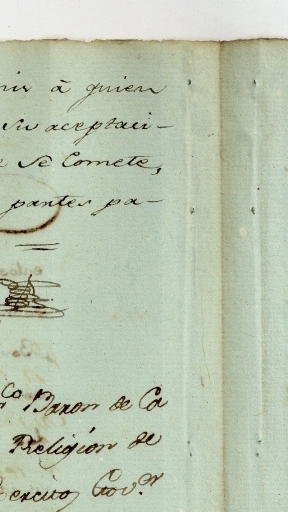 à quien
su aceptaci-
se Comete,
pantes pa-
Baron de Ca
Religion de
Exercito, Gov.r